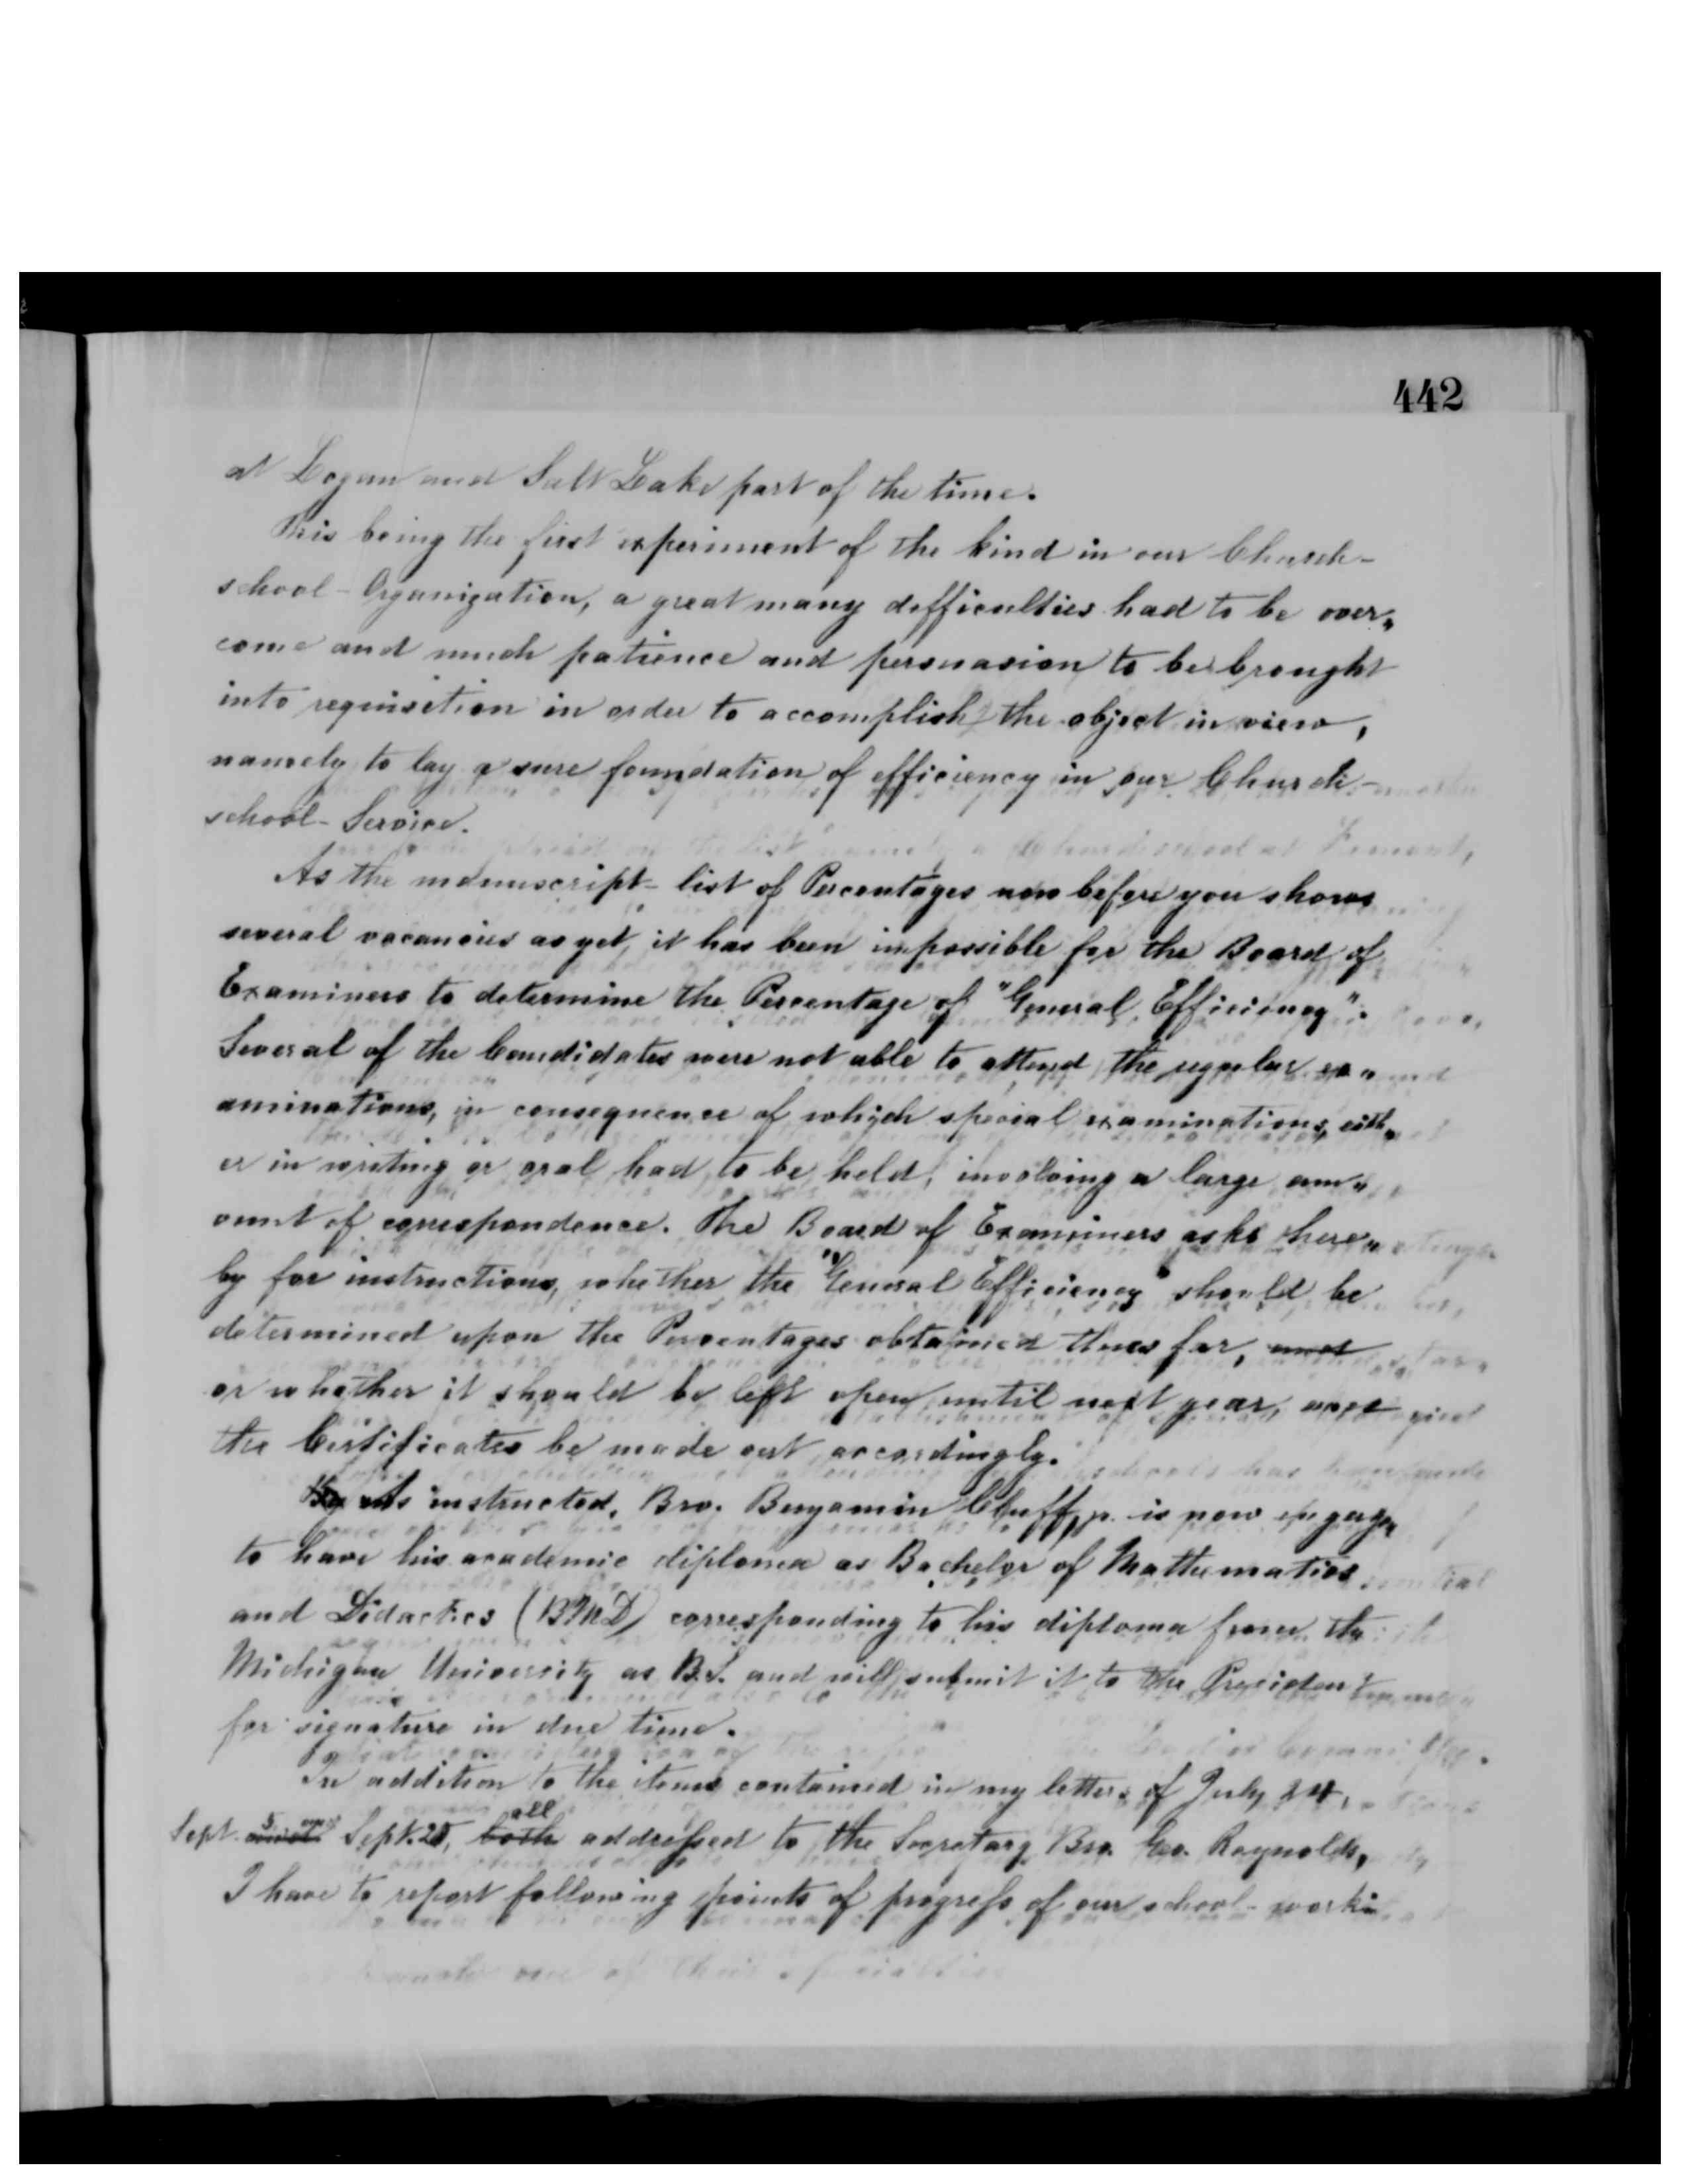 442
at Logan and Salt Lake part of the time.
This being the first experiment of the kind in our Church-
school-Organization, a great many difficulties had to be over„
come and much patience and persuasion to be brought
into requisition in order to accomplish the object in view,
namely to lay a sure foundation of efficiency in our Church-
school-Service.
As the manuscript-list of Percentages now before you shows
several vacancies as yet, it has been impossible for the Board of
Examiners to determine the Percentage of "General Efficiency".
Several of the Candidates were not able to attend the regular ex„
aminations, in consequence of which special examinations, eith„
er in writing or oral had to be held, involving a large am„
ount of correspondence. The Board of Examiners asks here„
by for instructions, whether the "General Efficiency" should be
determined upon the Percentages obtained thus far, and
or whether it should be left open until next year, and
the Certificates be made out accordingly.
As instructed, Bro. Benjamin Cluff jr. is now engag„
to have his academic diploma as Bachelor of Mathematics
and Didactics (BMD) corresponding to his diploma from the
Michigan University as B.S. and will submit it to the President
for signature in due time.
In addition to the items contained in my letters of July 24,
Sept. 5 and Sept. 25, both all addressed to the Secretary Bro. Geo. Reynolds,
I have to report following points of progress of our school-work: